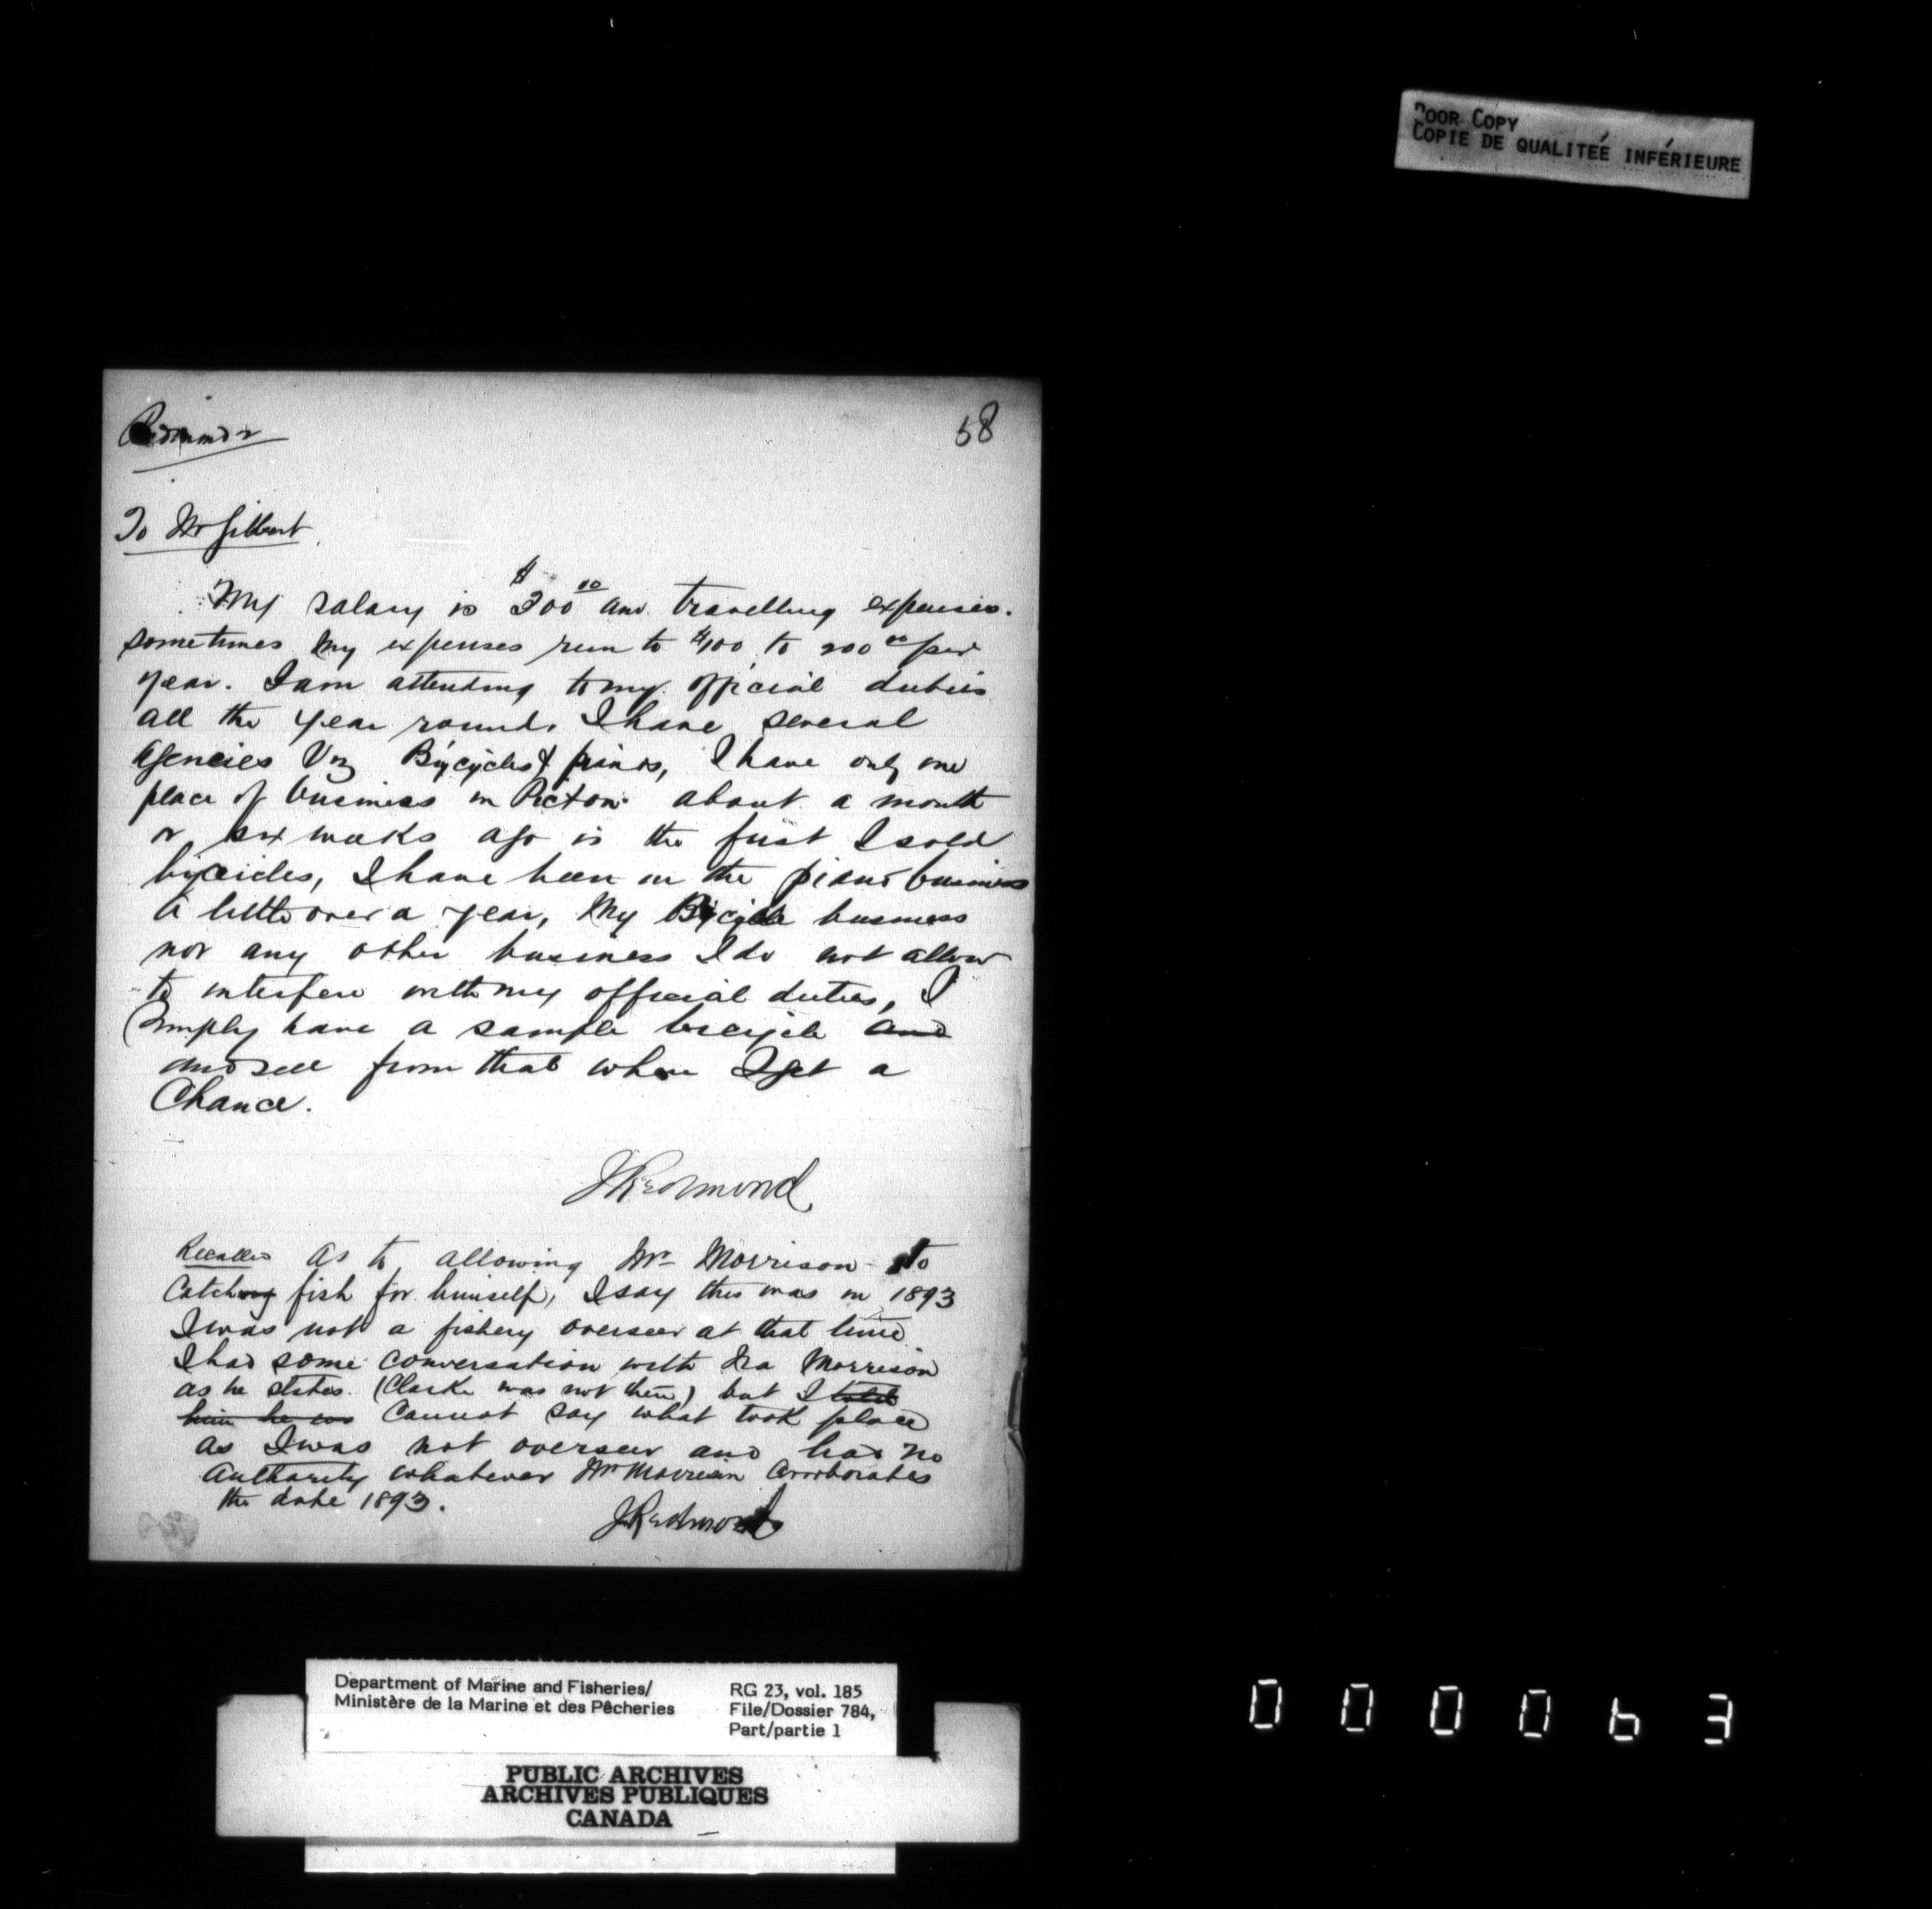 POOR COPY
COPIE DE QUALITEÉ INFÉRIEURE
Redmond
58
To Mr Gilbert
My salary is $300.00 and travelling expenses.
sometimes my expenses run to $100 to 200.00 per
year. I am attending to my official duties
all the year round. I have several
agencies Viz Bicycles & pianos, I have only one
place of business in Picton. about a month
or six weeks ago is the first I sold
bicicles, I have been in the piano business
a little over a year, My Bicycle business
nor any other business I do not allow
to interfere with my official duties, I
simply have a sample bicycle and
and sell from that when I get a
Chance.
J Redmond
Recalled as to allowing Mr Morrison to
Catching fish for himself, I say this was in 1893
I was not a fishery overseer at that time
I had some conversation with Ira Morrison
as he states. (Clarke was not there) but I told
him he was Cannot say what took place
as I was not overseer and had no
authority whatever Mr Morrison Corroborates
the date 1893.
J Redmond
Department of Marine and Fisheries/
Ministère de la Marine et des Pêcheries
RG 23, vol. 185
File/Dossier 784,
Part/partie 1
PUBLIC ARCHIVES
ARCHIVES PUBLIQUES
CANADA
000063